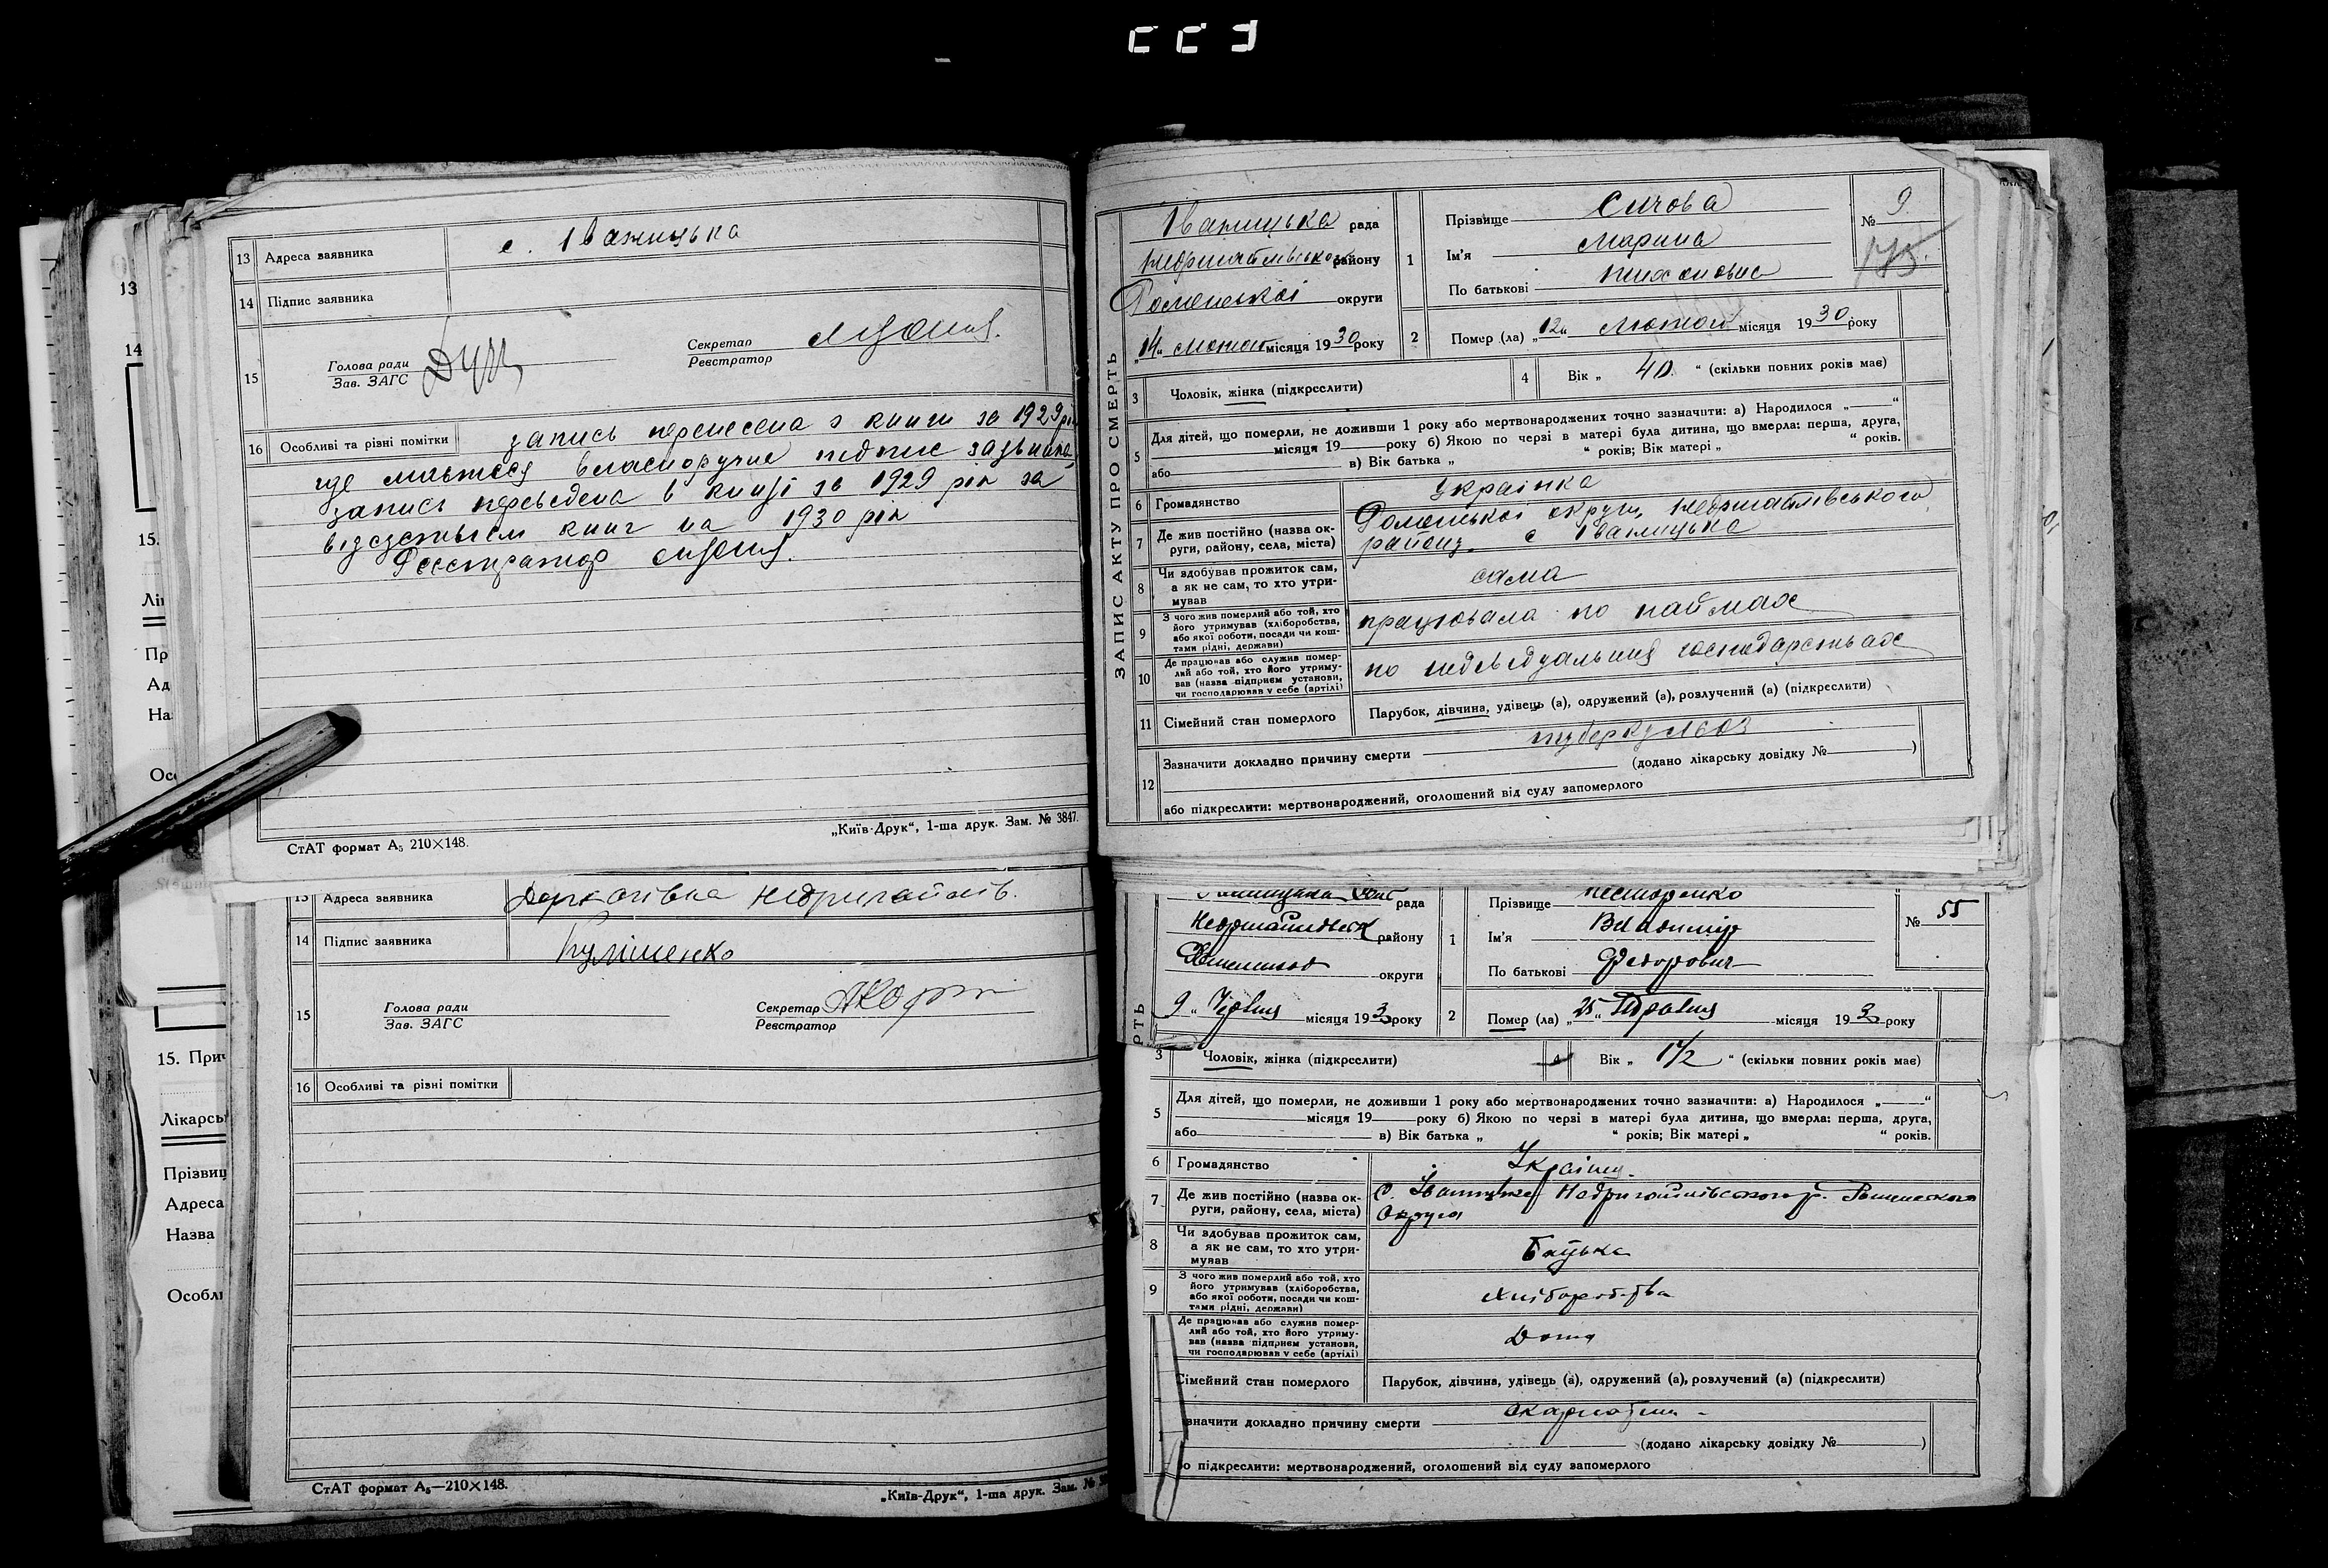 13 Адреса заявника с. Іваницька
14 Підпис заявника
15
Голова ради
Зав. ЗАГС
Секретар
Реєстратор
16 Особливі та різні помітки запись перенесена з книги за 1929 рік
где мається власноручне подпис заявника
запись переведена в книзі за 1929 рік за
відсутьтєм книг на 1930 рік
Реєстратор
„Київ-Друк“, 1-ша друк. Зам. № 3847.
СтАТ формат А₅ 210×148.
ЗАПИС АКТУ ПРО СМЕРТЬ
Іваницька рада
Недригайлівського району
Роменської округи
„14“ лютого місяця 1930 року
1
Прізвище Сичова
Ім'я Марина
По батькові Тихоновна
№ 9
175.
2 Помер (ла) „12“ Лютого місяця 1930 року
3 Чоловік, жінка (підкреслити)
4 Вік „ 40 “ (скільки повних років має)
5 Для дітей, що померли, не доживши 1 року або мертвонароджених точно зазначити: а) Народилося „ “
місяця 19 року б) Якою по черзі в матері була дитина, що вмерла: перша, друга,
або в) Вік батька „ “ років; Вік матері „ “ років.
6 Громадянство Українка
7 Де жив постійно (назва ок-
руги, району, села, міста)
Роменської округи, Недригайлівського
району с Іваницька
8 Чи здобував прожиток сам,
а як не сам, то хто утри-
мував
сама
9 З чого жив померлий або той, хто
його утримував (хліборобства,
або якої роботи, посади чи кош-
тами рідні, держави)
працювала по наймах
10 Де працював або служив помер-
лий або той, хто його утриму-
вав (назва підприєм установи,
чи господарював у себе (артілі)
по індивідуальних господарствах
11 Сімейний стан померлого Парубок, дівчина, удівець (а), одружений (а), розлучений (а) (підкреслити)
12 Зазначити докладно причину смерти туберкульоз
(додано лікарську довідку № )
або підкреслити: мертвонароджений, оголошений від суду запомерлого
13 Адреса заявника Недригайлів.
14 Підпис заявника Куліменко
15
Голова ради
Зав. ЗАГС
Секретар
Реєстратор
16 Особливі та різні помітки
СтАТ формат А₅—210×148.
„Київ-Друк“, 1-ша друк. Зам. №
РТЬ
рада
Недригайлівськ району
округи
9 „ Червня місяця 193 року
1
Прізвище Нестеренко
Ім'я Владимір
По батькові Федорович
№ 55
2 Помер (ла) „25“ Травня місяця 193 року
3 Чоловік, жінка (підкреслити)
4 Вік „ 1½ “ (скільки повних років має)
5 Для дітей, що померли, не доживши 1 року або мертвонароджених точно зазначити: а) Народилося „ “
місяця 19 року б) Якою по черзі в матері була дитина, що вмерла: перша, друга,
або в) Вік батька „ “ років; Вік матері „ “ років.
6 Громадянство
7 Де жив постійно (назва ок-
руги, району, села, міста)
с. Іваницька Недригайлівського р. Роменського
Округа
8 Чи здобував прожиток сам,
а як не сам, то хто утри-
мував
Батька
9 З чого жив померлий або той, хто
його утримував (хліборобства,
або якої роботи, посади чи кош-
тами рідні, держави)
Хліборобства
Де працював або служив помер-
лий або той, хто його утриму-
вав (назва підприєм установи,
чи господарював у себе (артілі)
Дома
Сімейний стан померлого Парубок, дівчина, удівець (а), одружений (а), розлучений (а) (підкреслити)
значити докладно причину смерти скарлатина
(додано лікарську довідку № )
о підкреслити: мертвонароджений, оголошений від суду запомерлого
13
14
15.
Лі
Пр
Ад
На
Ос
15. Прич
Лікарсь
Прізвищ
Адреса
Назва
Особл